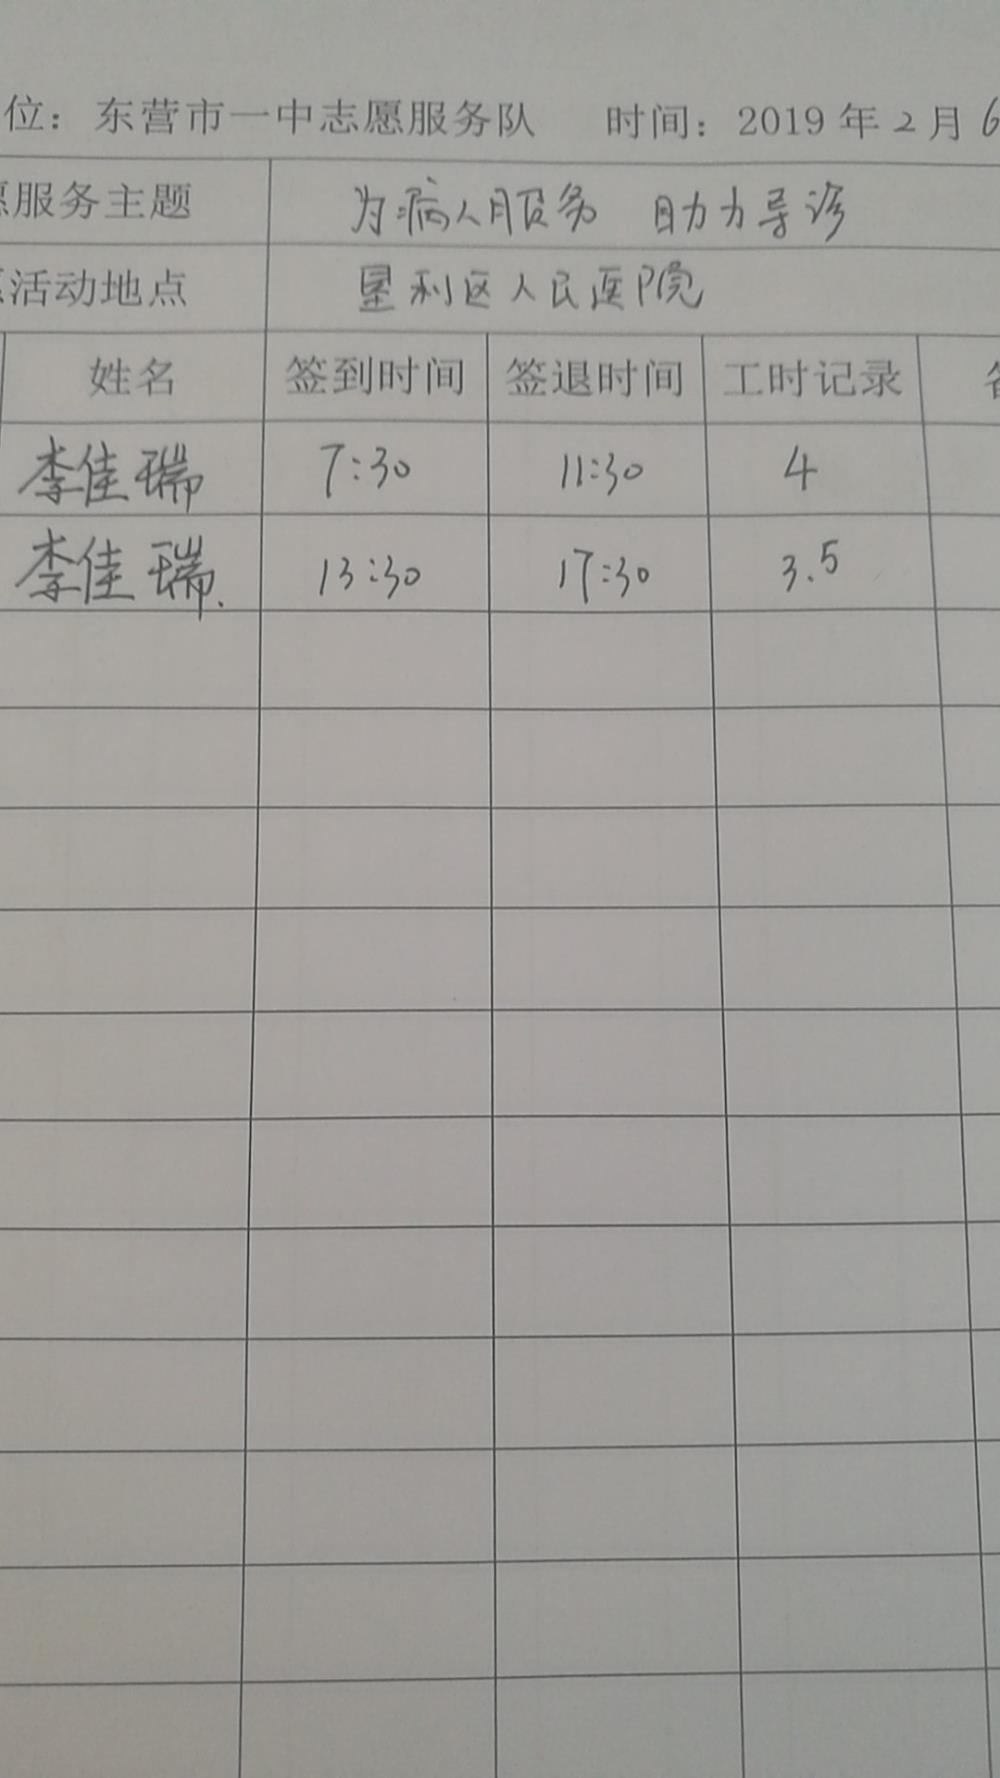 位：东营市一中志愿服务队 时间：2019年2月6
愿服务主题 为病人服务 助力导诊
活动地点 垦利区人民医院
姓名 签到时间 签退时间 工时记录
李佳瑞 7:30 11:30 4
李佳瑞 13:30 17:30 3.5